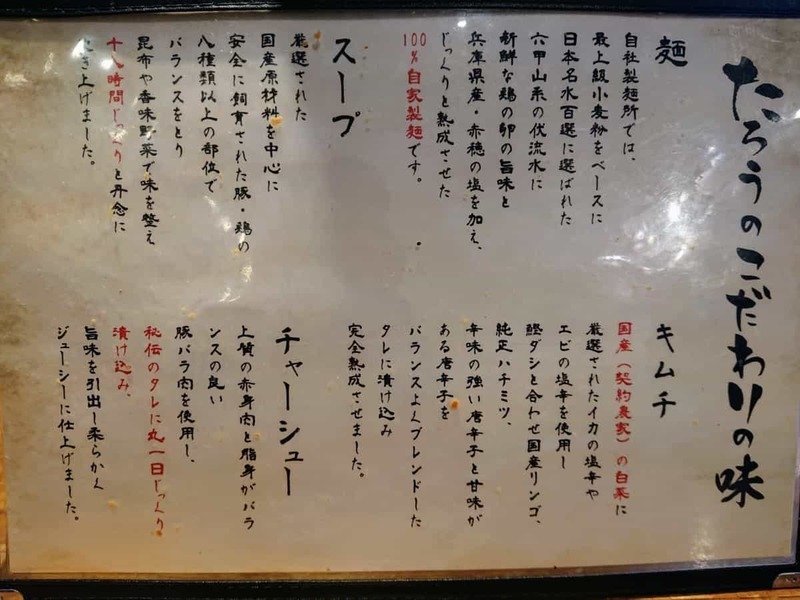 たろうのこだわりの味
麺
自社製麺所では、
最上級小麦粉をベースに
日本名水百選に選ばれた
六甲山系の伏流水に
新鮮な鶏の卵の旨味と
兵庫県産・赤穂の塩を加え、
じっくりと熟成させた
100%自家製麺です。
スープ
厳選された
国産原材料を中心に
安全に飼育された豚・鶏の
八種類以上の部位で
バランスをとり
昆布や香味野菜で味を整え
十八時間じっくりと丹念に
たき上げました。
キムチ
国産(契約農家)の白菜に
厳選されたイカの塩辛や
エビの塩辛を使用し
鰹ダシと合わせ国産リンゴ、
純正ハチミツ、
辛味の強い唐辛子と甘味が
ある唐辛子を
バランスよくブレンドした
タレに漬け込み
完全熟成させました。
チャーシュー
上質の赤身肉と脂身がバラ
ンスの良い
豚バラ肉を使用し、
秘伝のタレに丸一日じっくり
漬け込み、
旨味を引出し柔らかく
ジューシーに仕上げました。